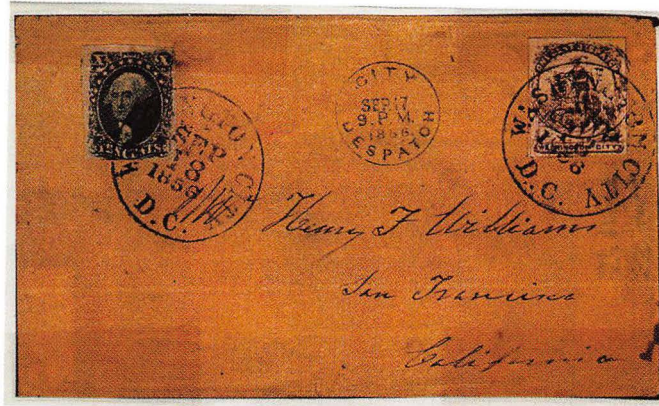 X X
TEN CENTS
WASHINGTON CITY
SEP
18
1856
D.C.
CITY
SEP 17
9. P.M.
1856
DESPATCH
WASHINGTON CITY
D.C.
Henry F Williams
San Francisco
California